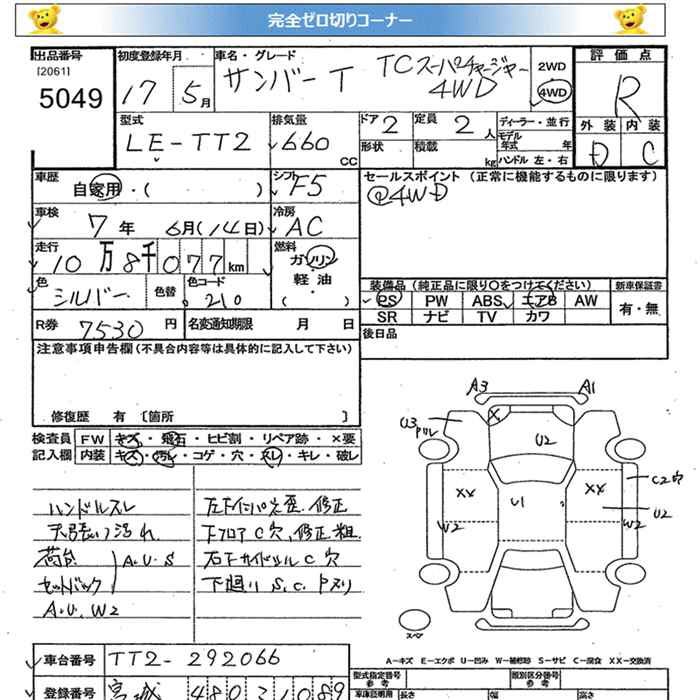 完全ゼロ切りコーナー
出品番号 初度登録年月 車名・グレード 評価点
[2061]
5049 17 5月 サンバー T TCスーパーチャージャー 4WD 2WD 4WD R
型式 排気量 ドア 2 定員 2人 ディーラー・並行 外装 内装
LE-TT2 660 CC 形状 積載 kg モデル年式 年 ハンドル 左・右 D C
車歴 自家用・( ) シフト F5 セールスポイント (正常に機能するものに限ります)
@4WD
車検 7年 6月(14日) 冷房 AC
走行 10万8千077km 燃料 ガソリン・軽油・( )
色 シルバー 色替 色コード 210
装備品 (純正品に限り○をつけてください) 新車保証書
PS PW ABS エアB AW 有・無
SR ナビ TV カワ
R券 7530円 名変通知期限 月 日 後日品
注意事項申告欄(不具合内容等は具体的に記入して下さい)
修復歴 有 〔箇所 〕
検査員 FW キズ・飛石・ヒビ割・リペア跡・×要
記入欄 内装 キズ・汚れ・コゲ・穴・スレ・キレ・破レ
A3 A1
U3 U2
XX U1 XX C2穴
W2 W2 U2
スペア
ハンドルスレ 左下インパネ歪、修正
天張り汚れ 下フロアC穴、修正粗
荷台 A.U.S 右下サイドシルC穴
セットバック 下廻りS.C.
A.U.W2
車台番号 TT2-292066
登録番号 宮城 480 1089
A-キズ E-エクボ U-凹み W-補修跡 S-サビ C-腐食 XX-交換済
型式指定番号 参考 類別区分番号 参考
車庫証明用 長さ 幅 高さ